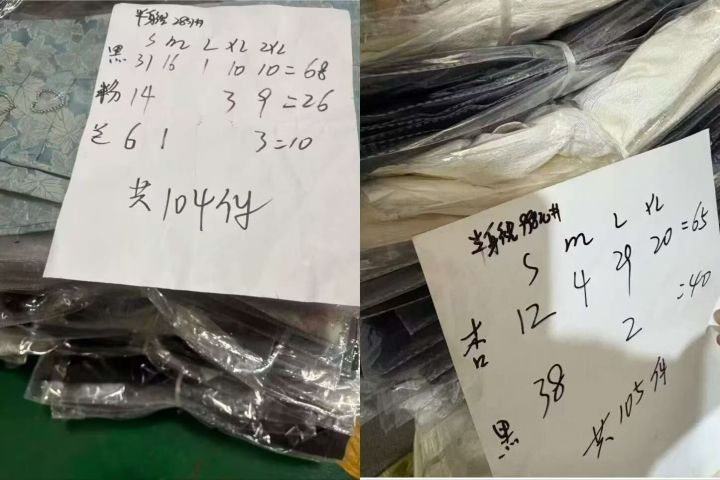 半身裙
S M L XL 2XL
黑 31 16 1 10 10=68
粉 14 3 9=26
兰 6 1 3=10
共104件
半身裙
S M L XL
杏 12 4 29 20=65
黑 38 2 =40
共105件